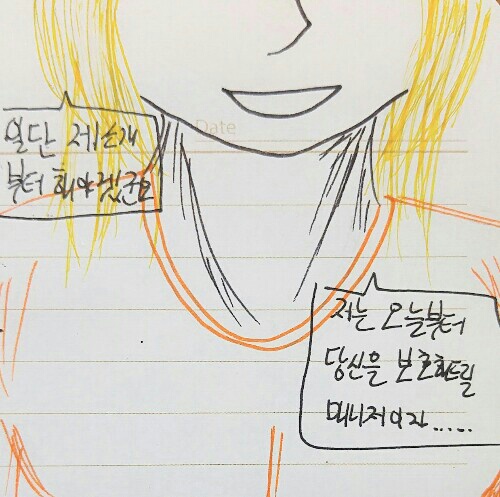 Date
일단 제소개
부터 해야겠군요
저는 오늘부터
당신을 보호해드릴
매니저이자.....